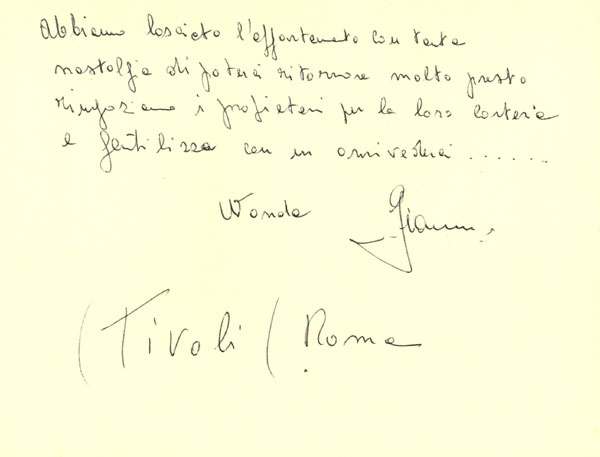 Abbiamo lasciato l'appartamento con tanta
nostalgia di poterci ritornare molto presto
ringraziamo i proprietari per la loro cortesia
e gentilezza con un arrivederci ......
Wanda Gianni
(Tivoli ( Roma